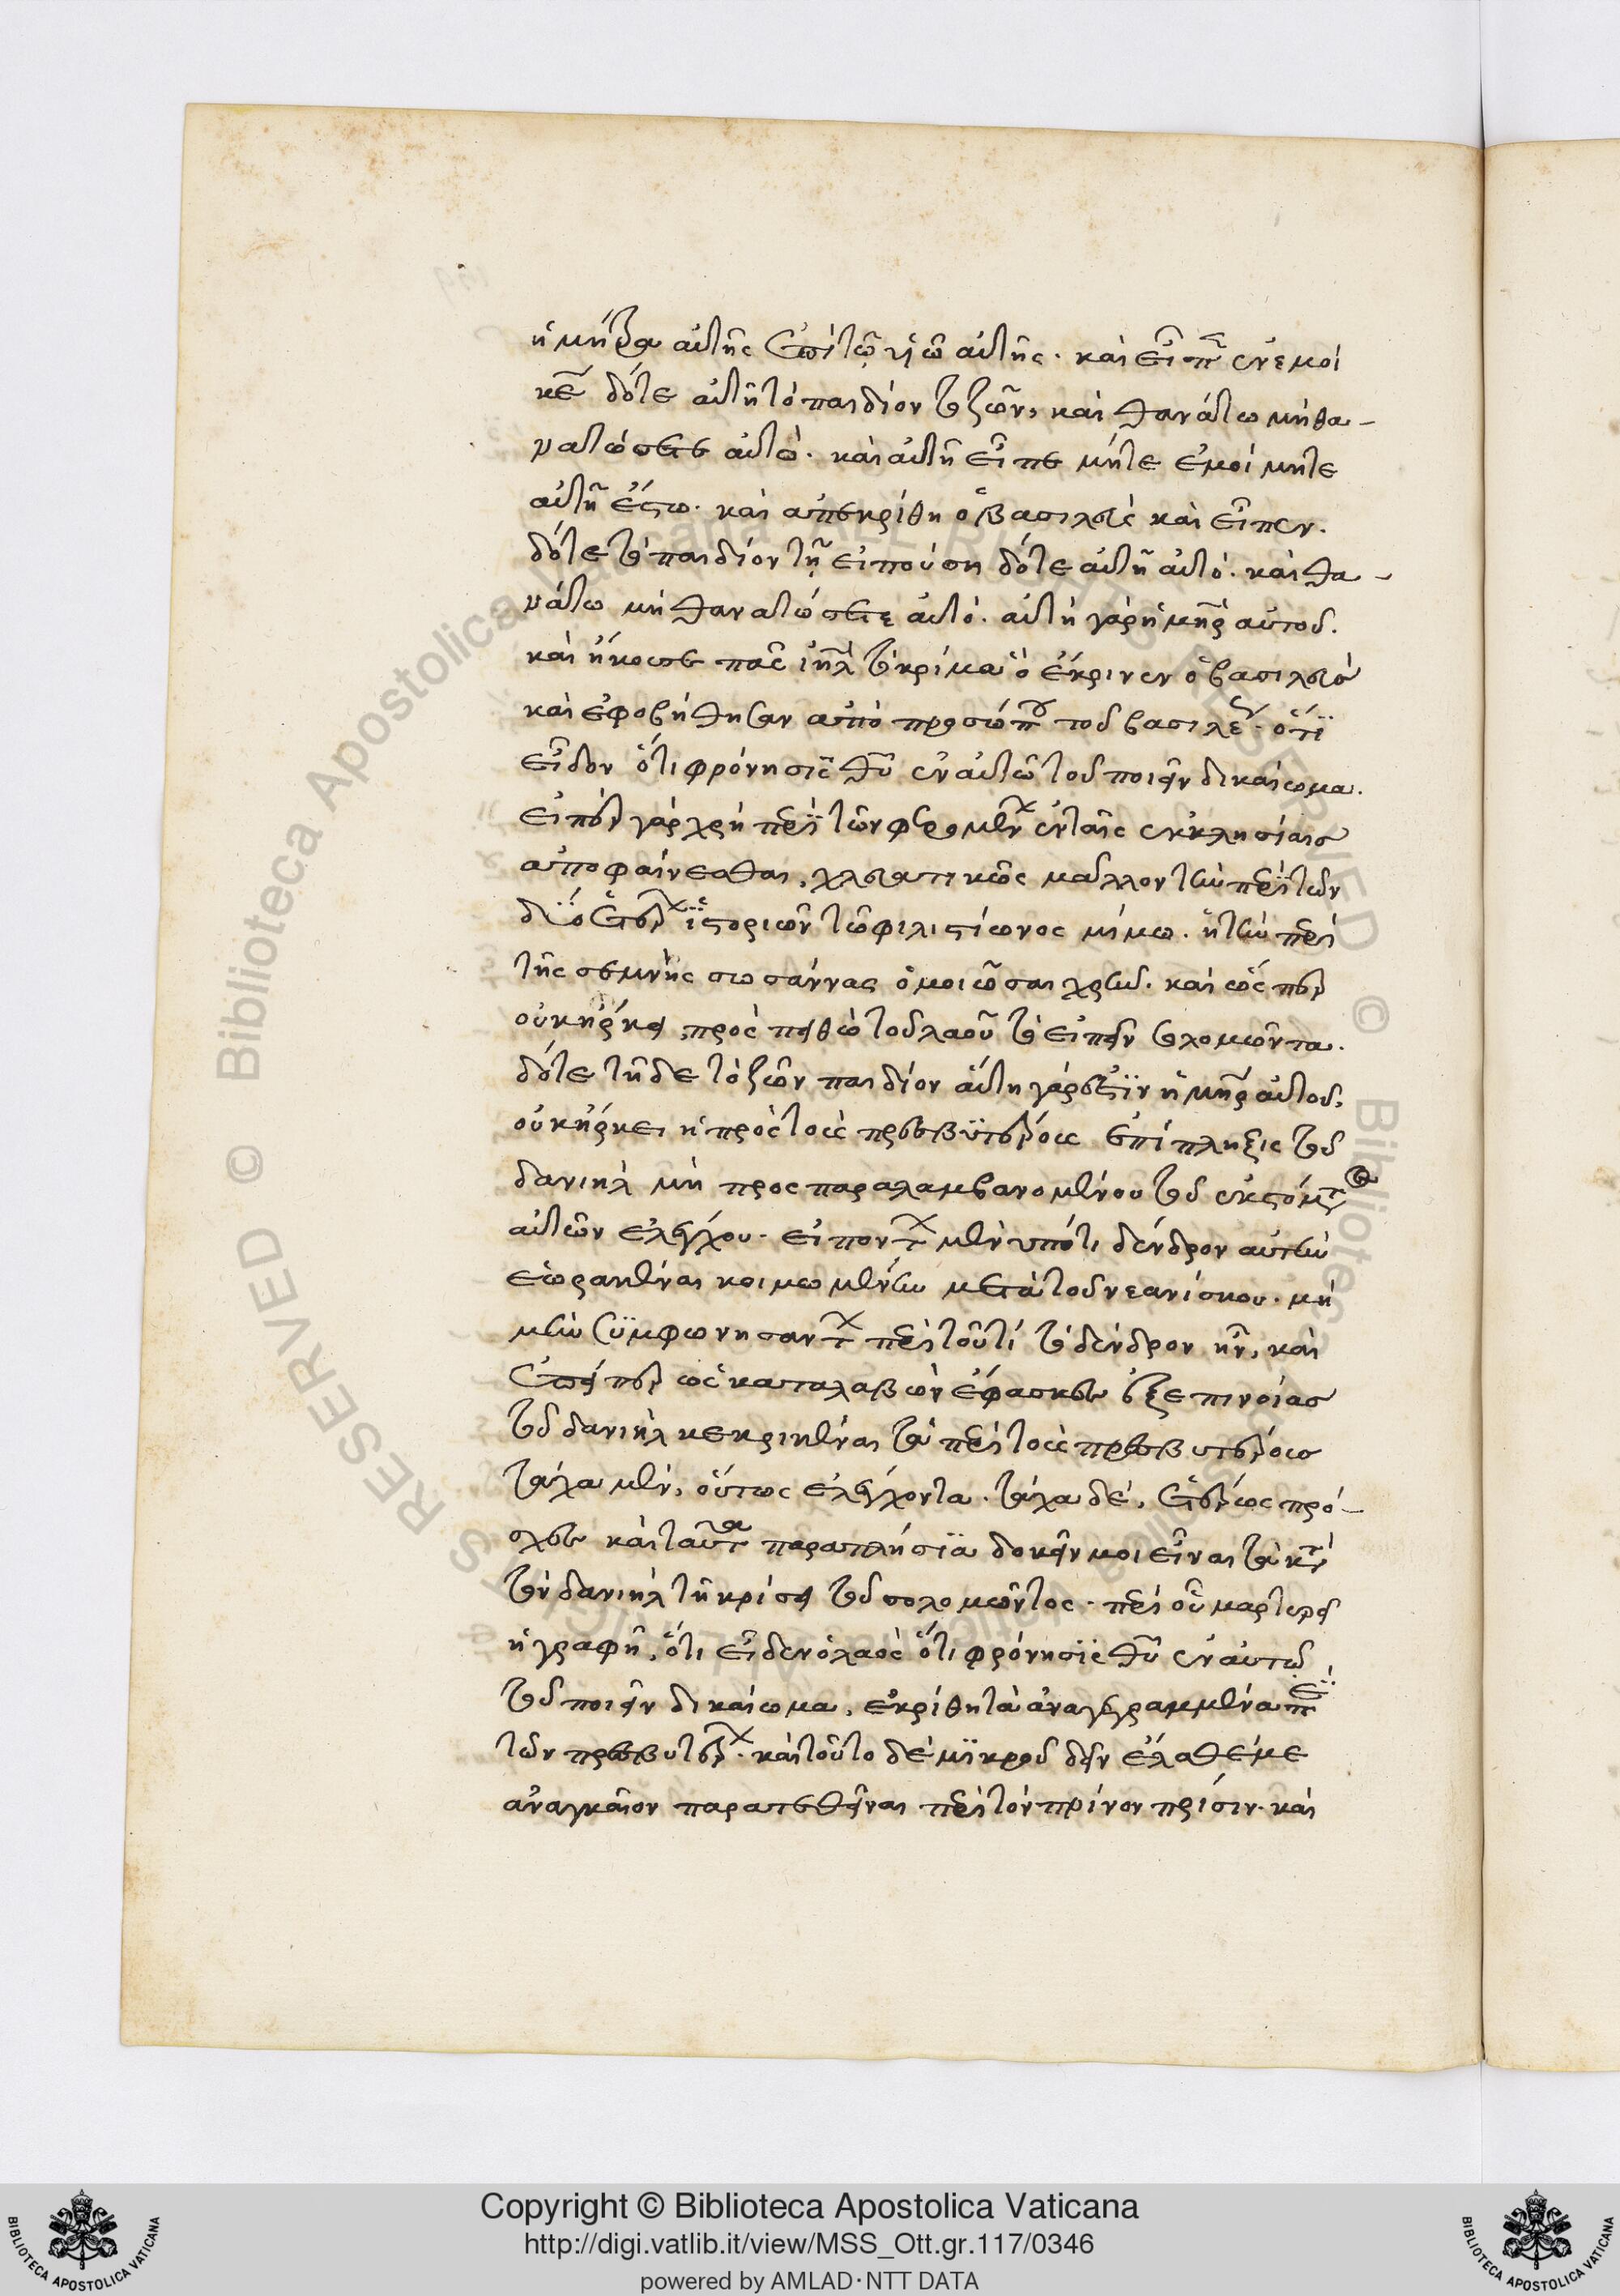 ἡ μήτρα αὐτῆς ἐπὶ τῷ υἱῷ αὐτῆς. καὶ εἶπεν ἐν ἐμοὶ
κε δότε αὐτῇ τὸ παιδίον τὸ ζῶν, καὶ θανάτω μὴ θα-
νατώσετε αὐτό. καὶ αὐτὴ εἶπε μήτε ἐμοὶ μήτε
αὐτῇ ἔστω. καὶ ἀπεκρίθη ὁ βασιλεὺς καὶ εἶπεν.
δότε τὸ παιδίον τῇ εἰπούση δότε αὐτῇ αὐτό. καὶ θα-
νάτω μὴ θανατώσετε αὐτό. αὐτὴ γὰρ ἡ μηρ αὐτοῦ.
καὶ ἤκουσε πᾶς ιηλ τὸ κρίμα ὃ ἔκρινεν ὁ βασιλεὺς
καὶ ἐφοβήθησαν ἀπὸ προσώπου τοῦ βασιλέως. ὅτι
εἶδον ὅτι φρόνησις θυ ἐν αὐτῷ τοῦ ποιεῖν δικαίωμα.
εἴπερ γὰρ χρὴ περὶ τῶν φερομένων ἐν ταῖς ἐκκλησίαις
ἀποφαίνεσθαι, χλευαστικῶς μᾶλλον τὴν περὶ τῶν
δύο ἑταιρῶν ἱστορίαν τῷ φιλιστίωνος μίμω. ἢ τὴν περὶ
τῆς σεμνῆς σωσάννας ὁμοιῶσαι χρῆν. καὶ ὥσπερ
οὐκ ἤρκει πρὸς πειθὼ τοῦ λαοῦ τὸ εἰπεῖν σολομῶντα.
δότε τῇδε τὸ ζῶν παιδίον αὕτη γάρ ἐστιν ἡ μηρ αὐτοῦ,
οὐκ ἤρκει ἡ πρὸς τοὺς πρεσβυτέρους ἐπίπληξις τοῦ
δανιὴλ μὴ προσπαραλαμβανομένου τοῦ ἐκ στόματος
αὐτῶν ἐλέγχου. εἰπόντων μὲν ὑπό τι δένδρον αὐτὴν
ἑωρακέναι κοιμωμένην μετὰ τοῦ νεανίσκου. μὴ
μὴν συμφωνησάντων περὶ τοῦ τί τὸ δένδρον ἦν, καὶ
ἐπείπερ ὡς καταλαβὼν ἔφασκεν ἐξ ἐπινοίας
τοῦ δανιὴλ κεκρικέναι τὰ περὶ τοὺς πρεσβυτέρους
τάχα μέν, οὕτως ἐλέγχοντα. τάχα δέ, ἑτέρως πρό-
σχες καὶ ταῦτα παραπλήσια δοκεῖν μοι εἶναι τὰ κατὰ
τὸν δανιὴλ τῇ κρίσει τοῦ σολομῶντος. περὶ οὗ μαρτυρεῖ
ἡ γραφή, ὅτι εἶδεν ὁ λαὸς ὅτι φρόνησις θυ ἐν αὐτῷ
τοῦ ποιεῖν δικαίωμα, ἐκρίθη τὰ ἀναγεγραμμένα περὶ
τῶν πρεσβυτέρων. καὶ τοῦτο δὲ μικροῦ δεῖν ἔλαθέ με
ἀναγκαῖον παρατεθῆναι περὶ τὸν πρῖνον πρίσιν. καὶ
Copyright © Biblioteca Apostolica Vaticana
http://digi.vatlib.it/view/MSS_Ott.gr.117/0346
powered by AMLAD·NTT DATA